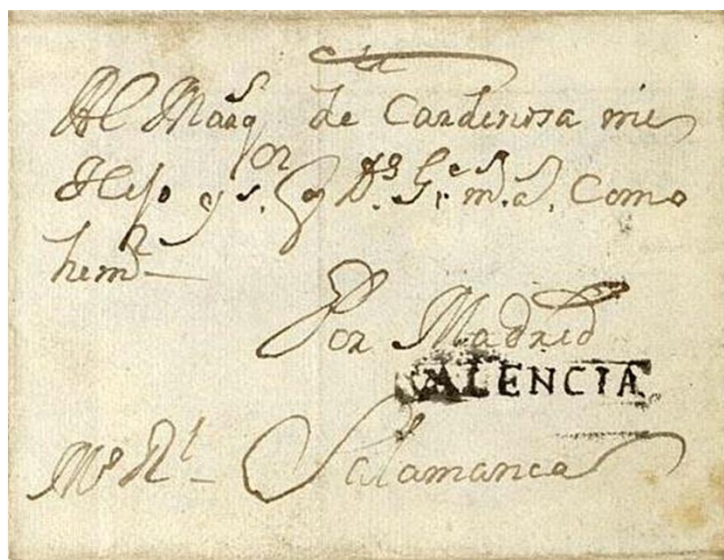 Al Marq.s de Cardeñosa mi
Hijo y s.or q D.s G.e m.s a.s Como
hem.o
Por Madrid
VALENCIA
Salamanca